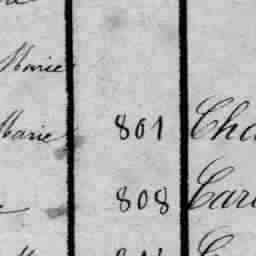 Marie
Marie 801 Cha
808 Car